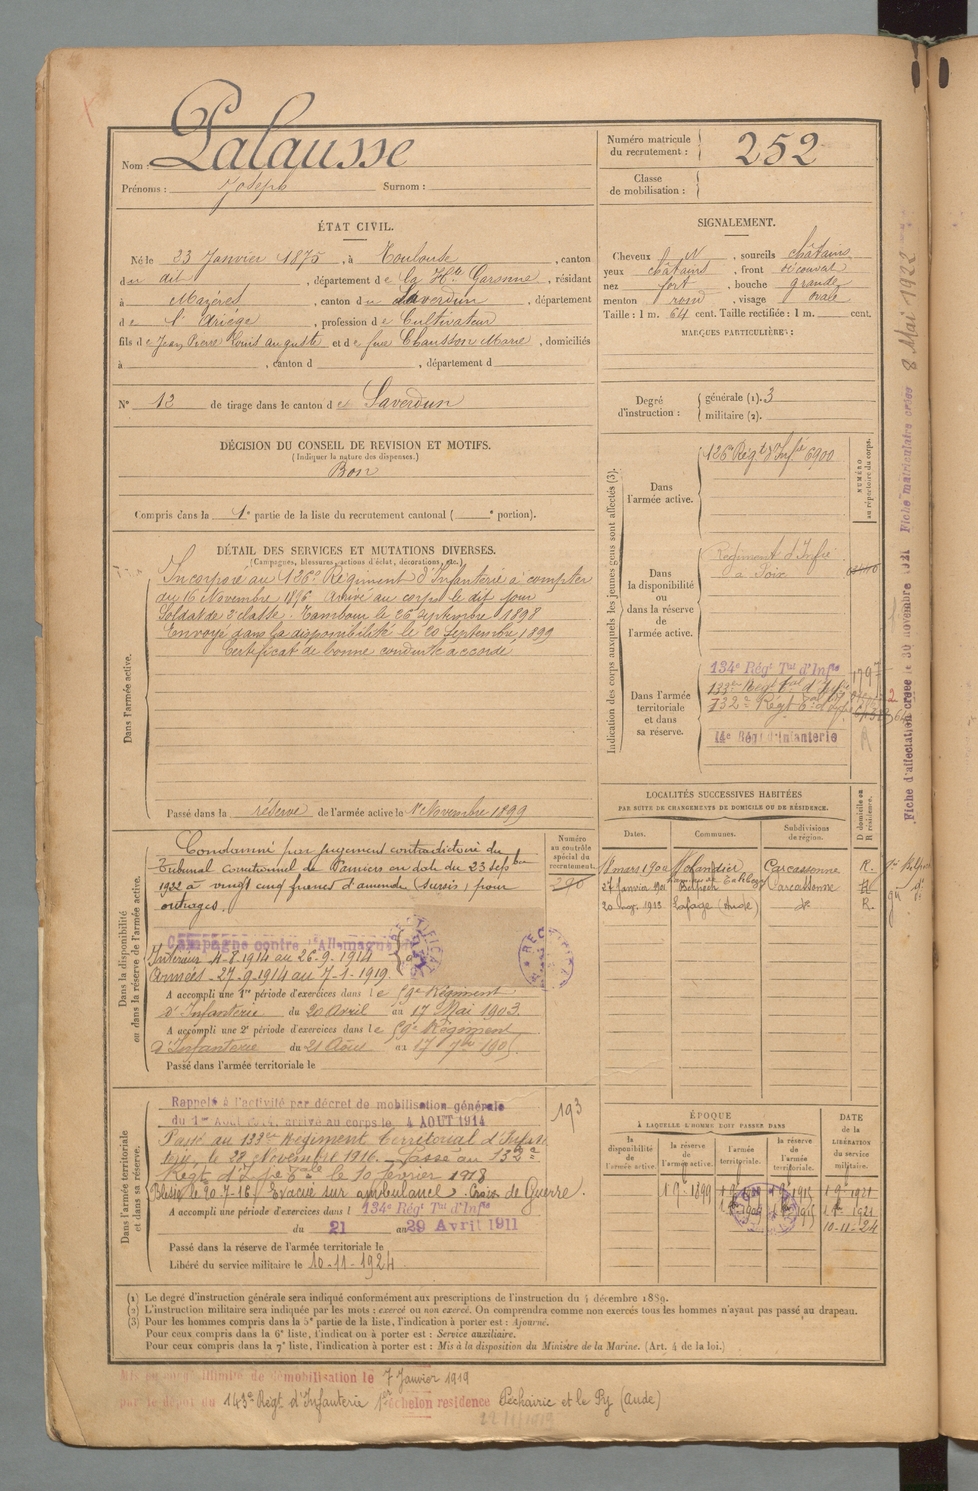 Nom : Palausse
Prénoms : Joseph Surnom :
Numéro matricule
du recrutement : 252
Classe
de mobilisation :
ÉTAT CIVIL.
Né le 23 Janvier 1875, à Toulouse, canton
du dit, département de la Hte Garonne, résidant
à Mazères, canton de Saverdun, département
de l'Ariège, profession de Cultivateur
fils de Jean Pierre Louis Auguste et de feue Chausson Marie, domiciliés
à , canton d , département d
N° 12 de tirage dans le canton de Saverdun
SIGNALEMENT.
Cheveux N, sourcils châtains
yeux châtains, front découvert
nez fort, bouche grande
menton rond, visage ovale
Taille : 1 m. 64 cent. Taille rectifiée : 1 m. cent.
MARQUES PARTICULIÈRES :
Degré
d'instruction :
générale (1). 3
militaire (2).
DÉCISION DU CONSEIL DE REVISION ET MOTIFS.
(Indiquer la nature des dispenses.)
Bon
Compris dans la 1e partie de la liste du recrutement cantonal ( e portion).
DÉTAIL DES SERVICES ET MUTATIONS DIVERSES.
(Campagnes, blessures, actions d'éclat, décorations, etc.)
Dans l'armée active.
Incorporé au 126e Régiment d'Infanterie à compter
du 16 Novembre 1896 Arrivé au corps le dit jour
Soldat de 2e classe. Tambour le 26 septembre 1898
Envoyé dans la disponibilité le 20 Septembre 1899
Certificat de bonne conduite accordé
Passé dans la réserve de l'armée active le 1er Novembre 1899
Indication des corps auxquels les jeunes gens sont affectés (3).
Dans
l'armée active.
126e Régt d'Infie 6900
NUMÉRO
au répertoire du corps.
Dans
la disponibilité
ou
dans la réserve
de
l'armée active.
Régiment d'Infie
à Foix
Dans l'armée
territoriale
et dans
sa réserve.
134e Régt Tal d'Infie
133me Régt Tal d'Infie
132e Régt Tal d'Inf
14e Régt d'Infanterie
Fiche d'affectation créée le 30 novembre 1921 Fiche matriculaire créée 8 Mai 1922
Dans la disponibilité
ou dans la réserve de l'armée active.
Condamné par jugement contradictoire du
Tribunal Correctionnel de Pamiers en date du 23 sepbre
1922 à vingt cinq francs d'amende (sursis) pour
outrages.
Numéro
au contrôle
spécial du
recrutement.
290
Campagne contre l'Allemagne
Intérieur 4-8-1914 au 26-9-1914
Armées - 27-9-1914 au 7-1-1919.
A accompli une 1re période d'exercices dans le 59e Régiment
d'Infanterie du 20 Avril au 17 Mai 1903.
A accompli une 2e période d'exercices dans le 59e Régiment
d'Infanterie du 21 Août au 17 7bre 1905
Passé dans l'armée territoriale le
LOCALITÉS SUCCESSIVES HABITÉES
PAR SUITE DE CHANGEMENTS DE DOMICILE OU DE RÉSIDENCE.
Dates. Communes. Subdivisions
de région. D domicile ou
R résidence.
18 mars 1900 Molandier Carcassonne R.
27 janvier 1901 Belpech Carcassonne R
20 1912 Lafage (Aude) R.
Dans l'armée territoriale
et dans sa réserve.
Rappelé à l'activité par décret de mobilisation générale
du 1er Août 1914, arrivé au corps le 4 AOUT 1914
193
Passé au 133me Régiment Territorial d'Infan
terie, le 28 Novembre 1916. Passé au 132e
Régt d'Infie Tale le 10 février 1918
Blessé le 20-7-16 Evacué sur ambulance. Croix de Guerre.
A accompli une période d'exercices dans l 134e Régt Tal d'Infie
du 21 au 29 Avril 1911
Passé dans la réserve de l'armée territoriale le
Libéré du service militaire le 10-11-1924
ÉPOQUE
À LAQUELLE L'HOMME DOIT PASSER DANS
la
disponibilité
de
l'armée active.
la réserve
de
l'armée active.
l'armée
territoriale.
la
réserve de
l'armée
territoriale.
DATE
de la
LIBÉRATION
du service
militaire.
1 9e 1899 1 9e 1915 1 9e 1921
1921
10-11-24
(1) Le degré d'instruction générale sera indiqué conformément aux prescriptions de l'instruction du 4 décembre 1889.
(2) L'instruction militaire sera indiquée par les mots : exercé ou non exercé. On comprendra comme non exercés tous les hommes n'ayant pas passé au drapeau.
(3) Pour les hommes compris dans la 5e partie de la liste, l'indication à porter est : Ajourné.
Pour ceux compris dans la 6e liste, l'indication à porter est : Service auxiliaire.
Pour ceux compris dans la 7e liste, l'indication à porter est : Mis à la disposition du Ministre de la Marine. (Art. 4 de la loi.)
Mis en congé illimité de démobilisation le 7 Janvier 1919
par le dépôt du 143e Régt d'Infanterie 1er échelon résidence Péchairic et le Py (Aude)
22/1/1919